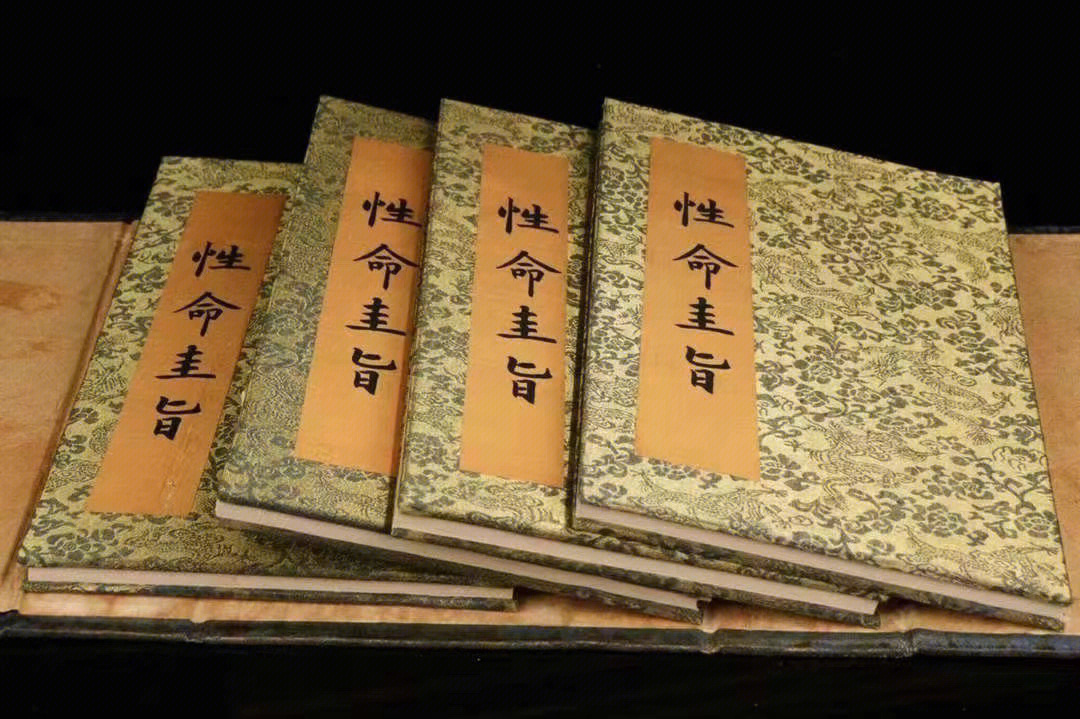 性命圭旨
性命圭旨
性命圭旨
性命圭旨